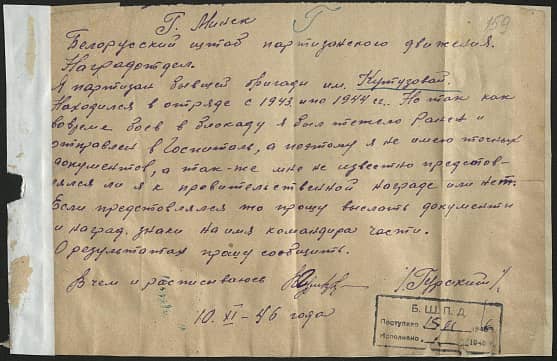 159
Г. Минск
Белорусский щтаб партизанского движения.
Наградотдел.
Я партизан бывшей бригади им. Кутузовай.
Находился в отряде с 1943 и по 1944 гг. Но так как
вовреме боев в блокаду я был тяжело Ранен и
отправлен в Госпиталь, а поэтому я не имею точных
документов, а так-же мне не известно предстов-
лялся ли я к правительственной награде или нет.
Если предстовлялся то прошу выслать документы
и наград. знаки на имя командира части.
О результатах прошу сообщить.
В чем и расписиваюсь /Гурский/
10. XI - 46 года
Б. Ш. П. Д.
Поступило 194 г.
Исполнено 194 г.